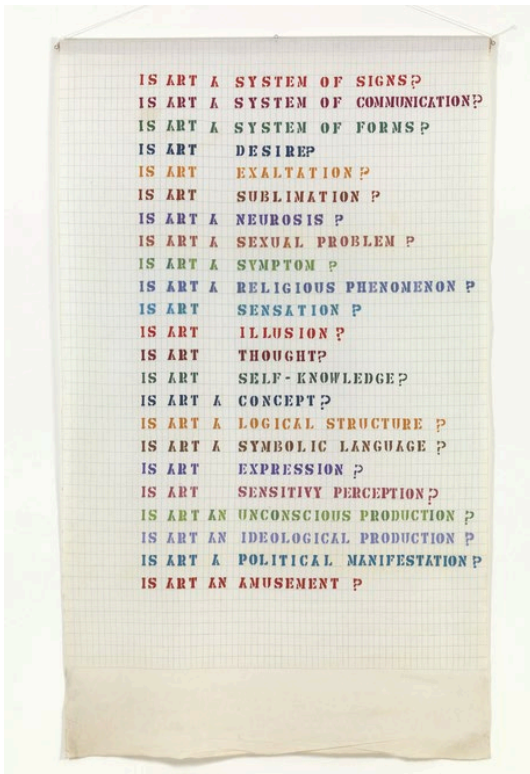 IS ART A SYSTEM OF SIGNS?
IS ART A SYSTEM OF COMMUNICATION?
IS ART A SYSTEM OF FORMS?
IS ART DESIRE?
IS ART EXALTATION?
IS ART SUBLIMATION?
IS ART A NEUROSIS?
IS ART A SEXUAL PROBLEM?
IS ART A SYMPTOM?
IS ART A RELIGIOUS PHENOMENON?
IS ART SENSATION?
IS ART ILLUSION?
IS ART THOUGHT?
IS ART SELF-KNOWLEDGE?
IS ART A CONCEPT?
IS ART A LOGICAL STRUCTURE?
IS ART A SYMBOLIC LANGUAGE?
IS ART EXPRESSION?
IS ART SENSITIVY PERCEPTION?
IS ART AN UNCONSCIOUS PRODUCTION?
IS ART AN IDEOLOGICAL PRODUCTION?
IS ART A POLITICAL MANIFESTATION?
IS ART AN AMUSEMENT?